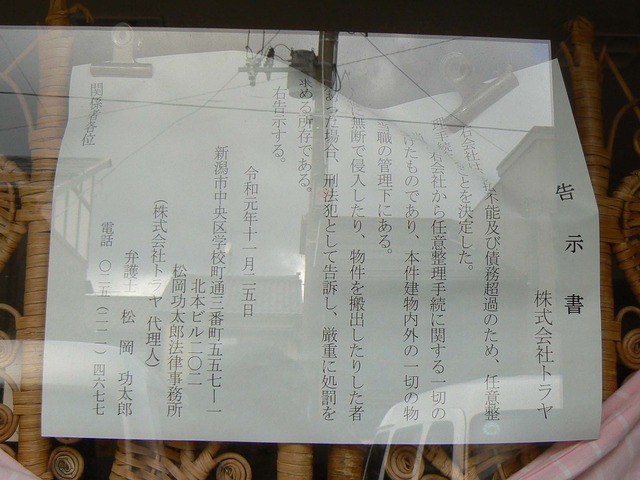 告示書
株式会社トラヤ
不能及び債務超過のため、任意整
ことを決定した。
会社から任意整理手続に関する一切の
けたものであり、本件建物内外の一切の物
職の管理下にある。
無断で侵入したり、物件を搬出したりした者
あった場合、刑法犯として告訴し、厳重に処罰を
求める所存である。
右告示する。
令和元年十一月二五日
新潟市中央区学校町通三番町五五七ー一
北本ビル二〇二
松岡功太郎法律事務所
(株式会社トラヤ 代理人)
弁護士 松岡 功太郎
電話 〇二五(二一一)四六七七
関係者各位